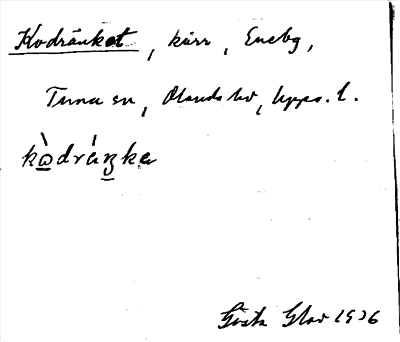 Kodränket, kärr, Eneby,
Tuna sn, Olands hd, Upps. l.
kòdráŋka
Gösta 1936